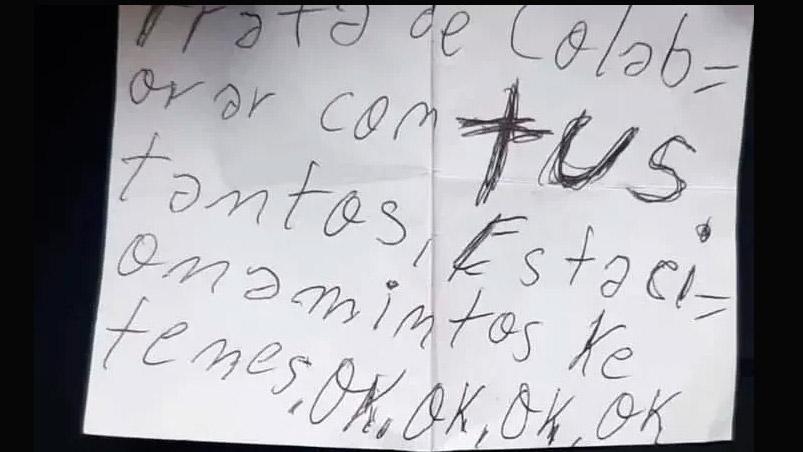 Trata de Colab=
orar con tus
tantos, Estaci=
onamintos Ke
tenes, OK, OK, OK, OK